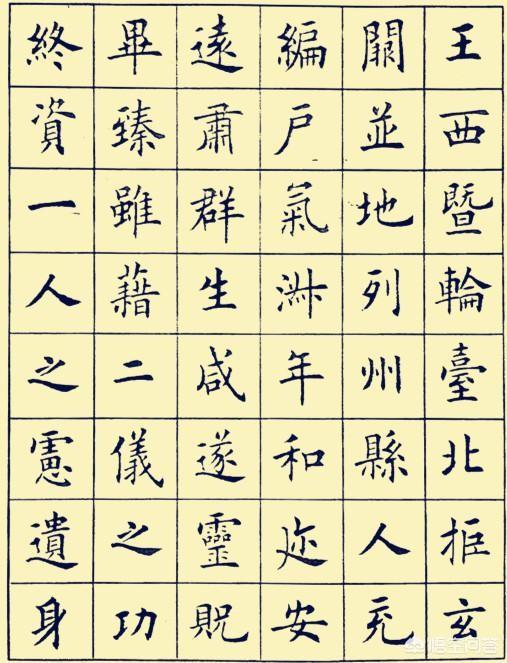 王西暨輪臺北拒玄
闕並地列州縣人充
編戶氣淑年和迩安
遠肅群生咸遂靈貺
畢臻雖藉二儀之功
終資一人之慮遺身
@悟空问答